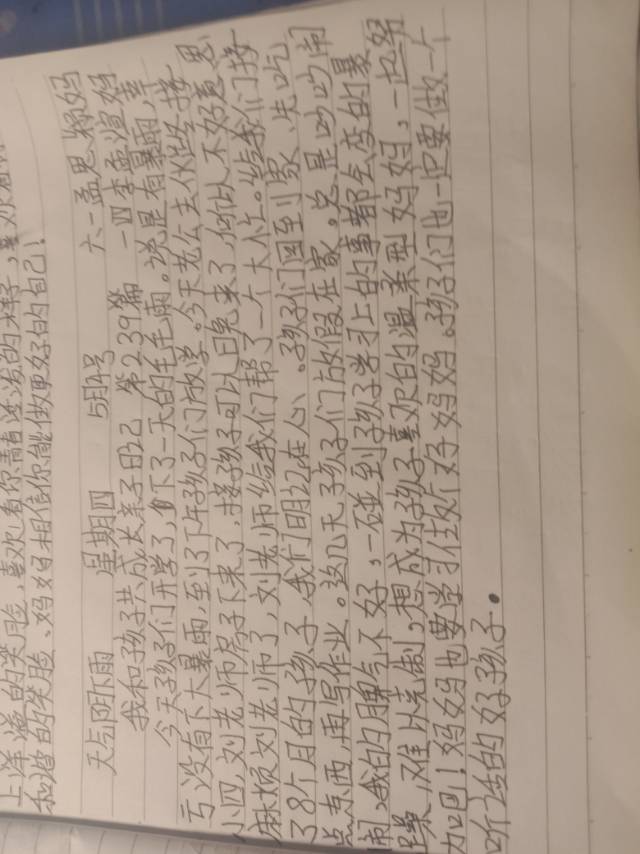 上洋溢的笑脸,喜欢看你清
和谐的笑脸、妈妈相信你能做更好的自己!
天气阴雨 星期四 5月4号 六一孟思颖妈
我和孩子共成长亲子日记 第239篇 一四李孟煊妈
今天孩子们开学了,下了一天的毛毛雨。说是有暴雨,幸
亏没有下大暴雨,到了下午孩子们放学。今天老公去伙坚接思
小四,刘老师房子下来了,接孩子可以日完来了,所以不好意思
麻烦刘老师了,刘老师给我们帮了一个大忙。给我们接
了8个月的孩子,我们明记在心、。孩子们回到家,先吃
点东西,再写作业。这几天孩子们放假在家。总是吵吵闹
闹,我的脾气不好,一碰到孩子学习上的事都会变的暴
躁,难以克制,想成为孩子喜欢的温柔型妈妈,一起努
加油!妈妈也要学习住好妈妈。孩子们也一定要做一个
听话的好孩子.